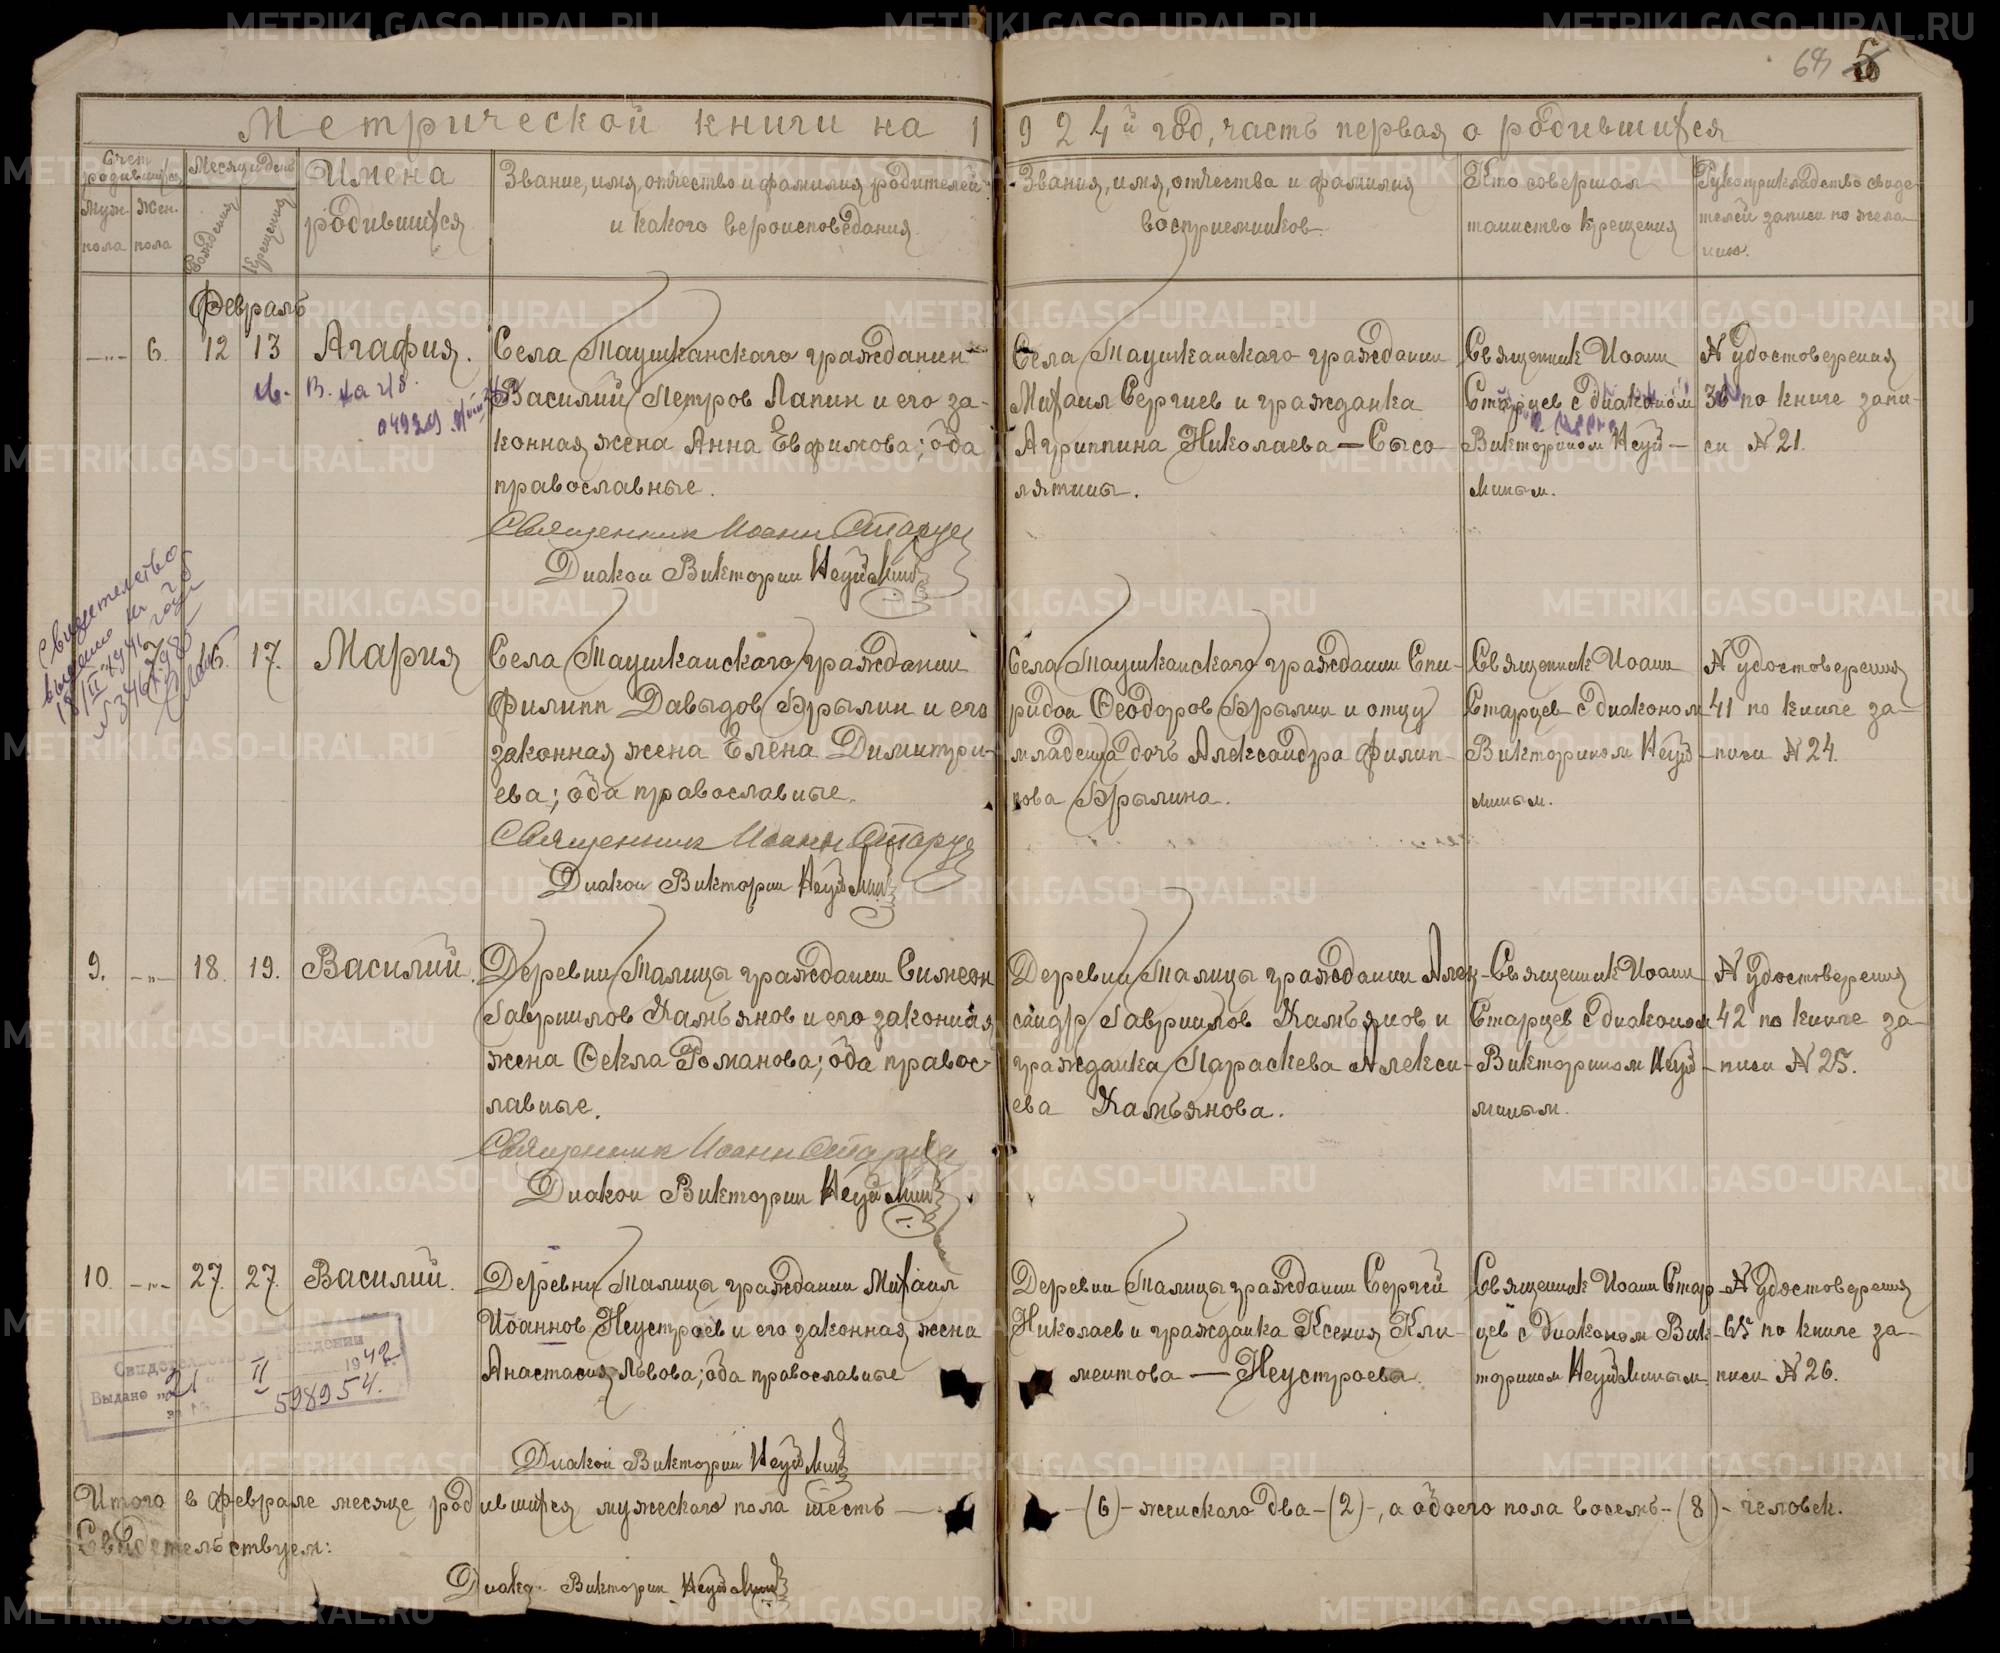 68 5
Метрической книги на 1924й год, часть первая о родившихся
Счет родившихся
Муж. пола
Жен. пола
Месяц и день
Рождения
Крещения
Имена
родившихся
Звание, имя, отчество и фамилия родителей
и какого вероисповедания
Звания, имя, отчества и фамилия
восприемников.
Кто совершал
таинство крещения
Рукоприкладство свиде-
телей записи по жела-
нию.
Февраль
—„— 6. 12 13 Агафия.
Села Таушканскаго гражданин
Василий Петров Лапин и его за-
конная жена Анна Евфимова; оба
православные.
Священник Иоанн Старцев
Диакон Викторин Неуймин
Села Таушканскаго граждании
Михаил Сергиев и гражданка
Агриппина Николаева — Сысо-
лятины.
Священник Иоанн
Старцев с диаконом
Викторином Неуй-
миным.
№ удостоверения
36 по книге запи-
си № 21.
Свидетельство
выдано
7 16. 17. Мария
Села Таушканскаго гражданин
Филипп Давыдов Брылин и его
законная жена Елена Димитри-
ева; оба православные.
Священник Иоанн Старцев
Диакон Викторин Неуймин
Села Таушканскаго гражданин Спи-
ридон Феодоров Брылин и отцу
младенца дочь Александра Филип-
пова Брылина.
Священник Иоанн
Старцев с диаконом
Викторином Неуй-
миным.
№ удостоверения
41 по книге за-
писи № 24.
9. —„— 18. 19. Василий.
Деревни Талицы гражданин Симеон
Гавриилов Камъянов и его законная
жена Фекла Романова; оба правос-
лавные.
Священник Иоанн Старцев
Диакон Викторин Неуймин
Деревни Талицы гражданин Алек-
сандр Гавриилов Камъянов и
гражданка Параскева Алекси-
ева Камъянова.
Священник Иоанн
Старцев с диаконом
Викторином Неуй-
миным.
№ удостоверения
42 по книге за-
писи № 25.
10. —„— 27. 27. Василий.
Деревни Талицы гражданин Михаил
Иоаннов Неустроев и его законная жена
Анастасия Львова; оба православные
Диакон Викторин Неуймин
Деревни Талицы гражданин Сергей
Николаев и гражданка Ксения Кли-
ментова — Неустроевы.
Священник Иоанн Стар-
цев с диаконом Вик-
торином Неуйминым.
№ удостоверения
65 по книге за-
писи № 26.
Свидетельство о рождении
Выдано „21" II 1942.
за № 598954.
Итого в феврале месяце родившихся мужескаго пола шесть — -(6)- женскаго два -(2)-, а обоего пола восемь -(8)- человек.
Свидетельствуем:
Диакон Викторин Неуймин
METRIKI.GASO-URAL.RU